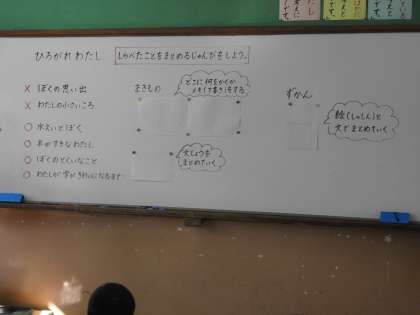 ひろがれ わたし
しらべたことをまとめるじゅんびをしよう。
× ぼくの思い出
× わたしの小さいころ
○ 水えいとぼく
○ 本がすきなわたし
○ ぼくのとくいなこと
○ わたしが字がきれいになるまで
まきもの
どこに何をかくか
メモ(下書き)をする
文しょうを
まとめていく
ずかん
絵(しゃしん)と
文でまとめていく